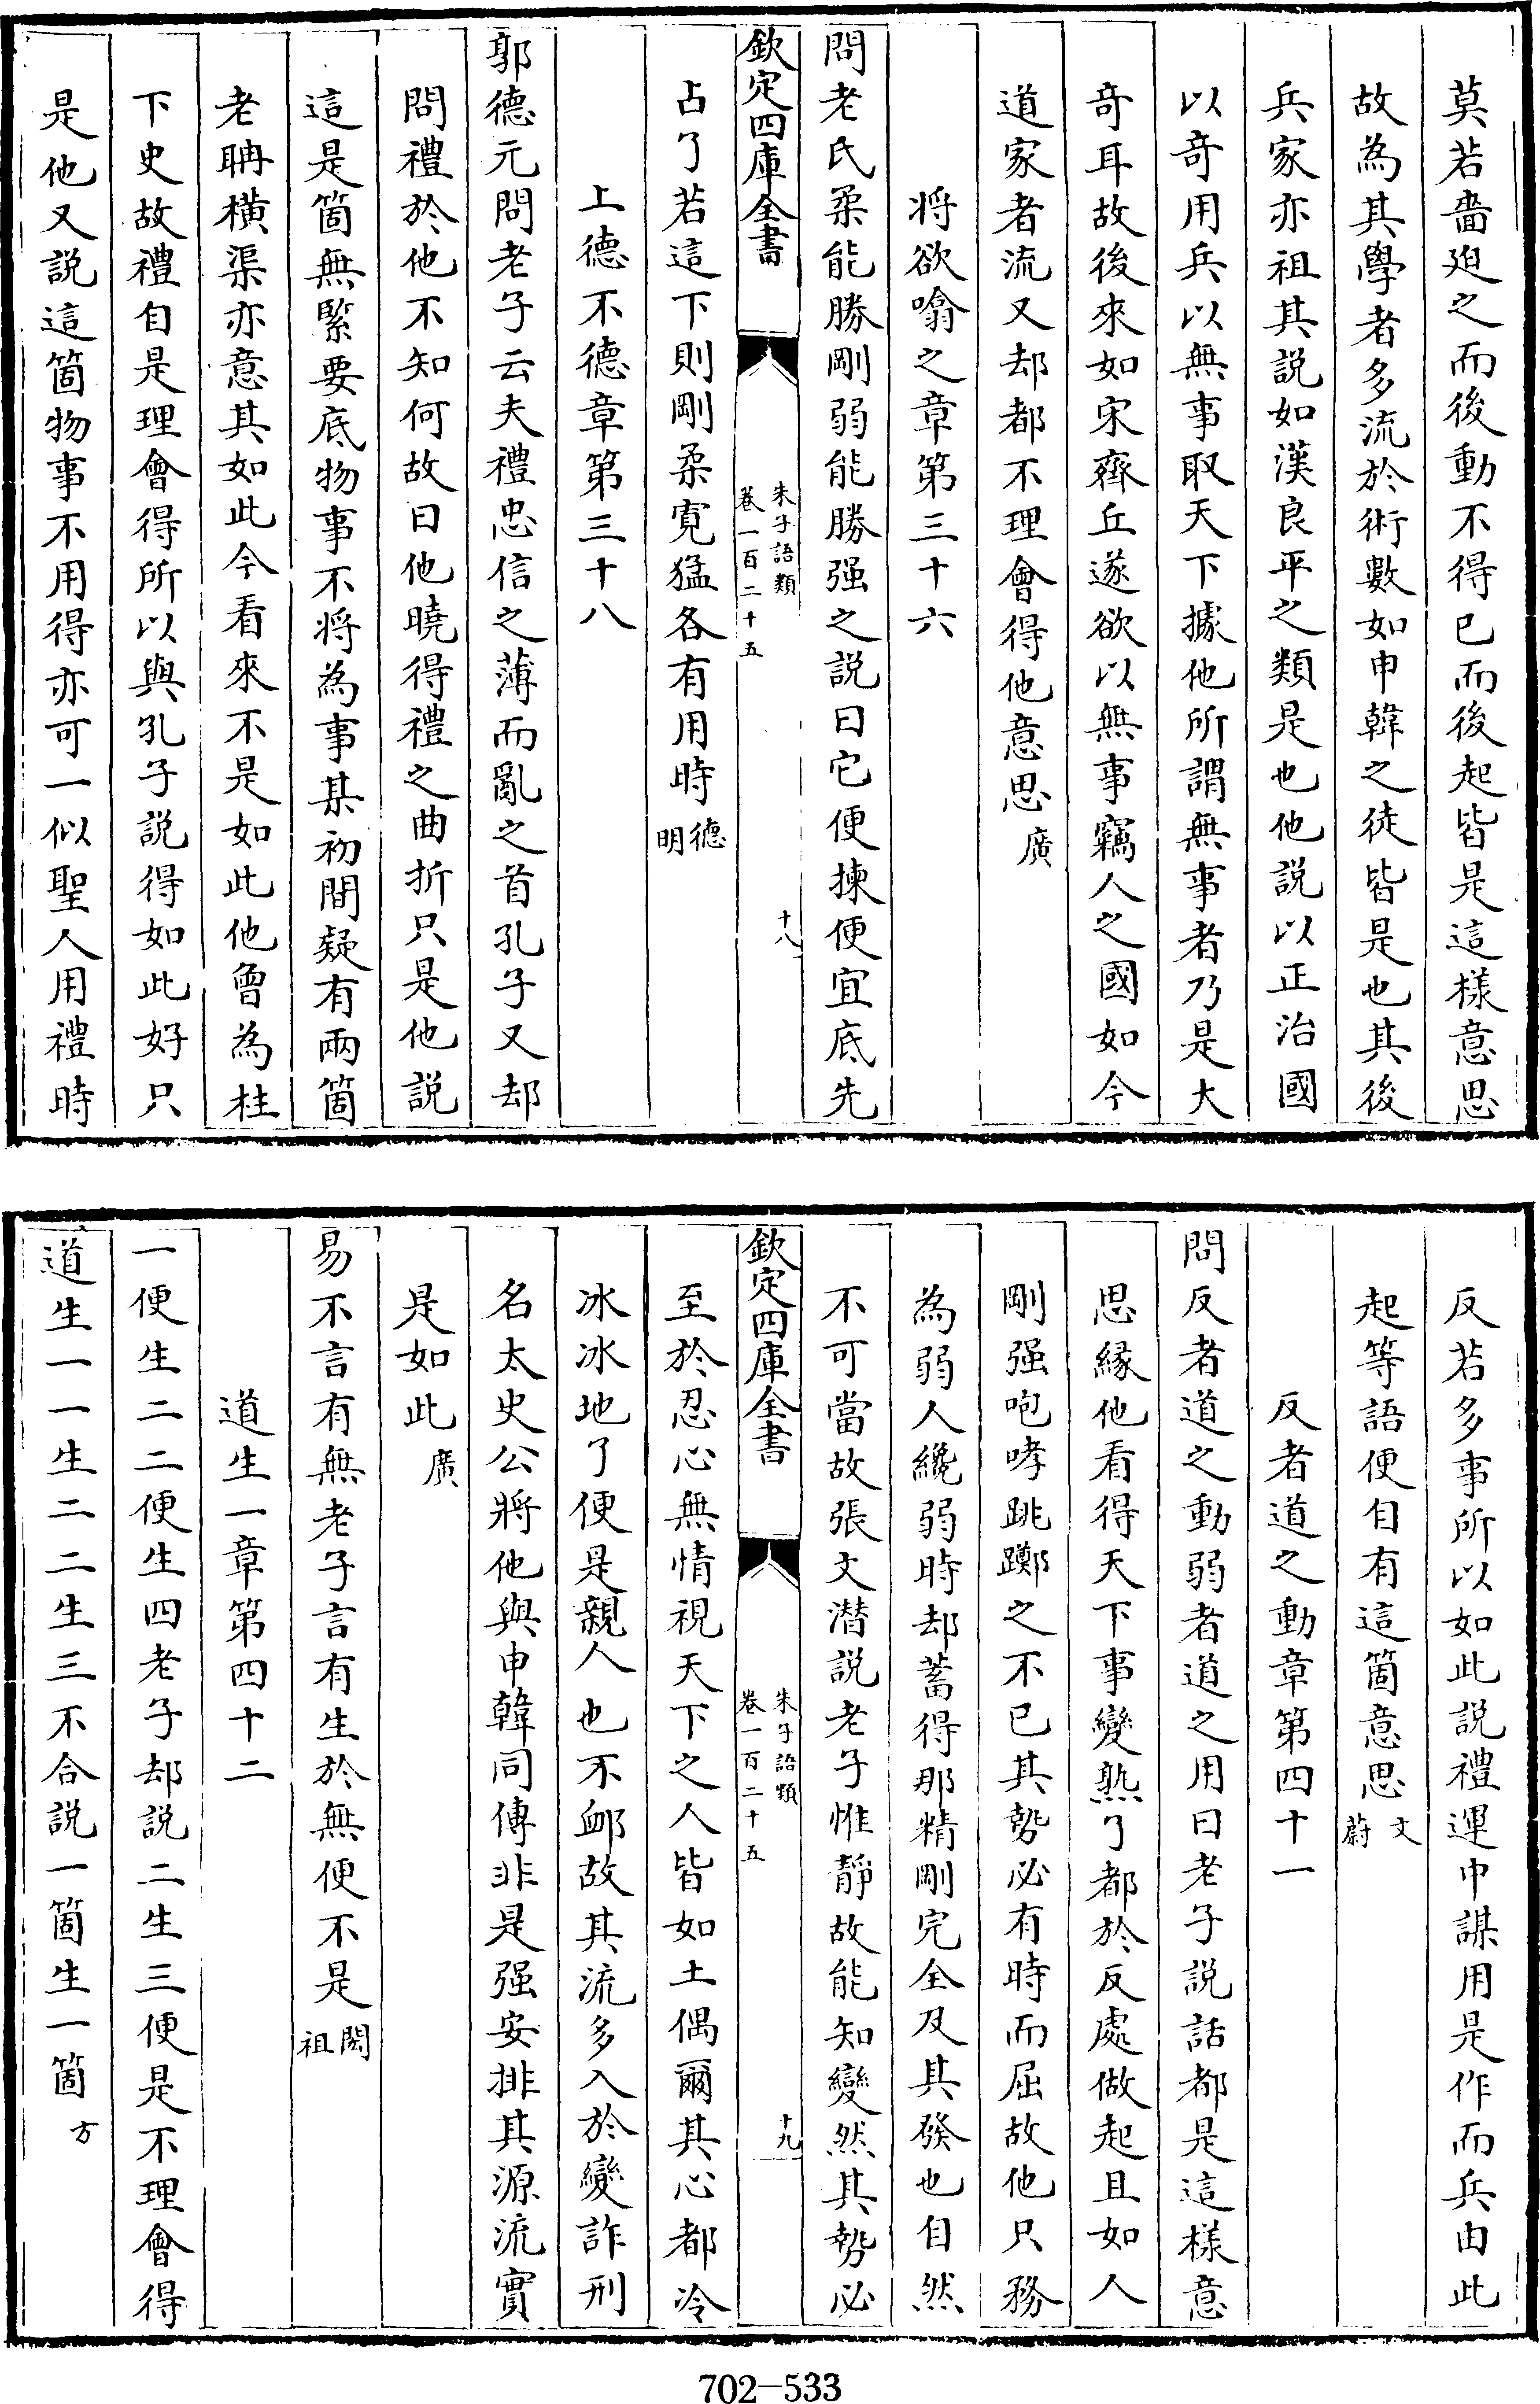 莫若嗇廹之而後動不得已而後起皆是這樣意思
故為其學者多流於術數如申韓之徒皆是也其後
兵家亦祖其説如漢良平之類是也他説以正治國
以竒用兵以無事取天下據他所謂無事者乃是大
竒耳故後來如宋齊丘遂欲以無事竊人之國如今
道家者流又却都不理會得他意思廣
将欲噏之章第三十六
問老氏柔能勝剛弱能勝强之説曰它便揀便宜底先
欽定四庫全書
朱子語類
卷一百二十五
十八
占了若這下則剛柔寛猛各有用時德明
上德不德章第三十八
郭德元問老子云夫禮忠信之薄而亂之首孔子又却
問禮於他不知何故曰他曉得禮之曲折只是他説
這是箇無緊要底物事不将為事某初間疑有兩箇
老聃横渠亦意其如此今看來不是如此他曽為柱
下史故禮自是理會得所以與孔子説得如此好只
是他又説這箇物事不用得亦可一似聖人用禮時
反若多事所以如此説禮運中謀用是作而兵由此
起等語便自有這箇意思文蔚
反者道之動章第四十一
問反者道之動弱者道之用曰老子説話都是這樣意
思緣他看得天下事變熟了都於反處做起且如人
剛强咆哮跳躑之不已其勢必有時而屈故他只務
為弱人纔弱時却蓄得那精剛完全及其發也自然
不可當故張文潛説老子惟靜故能知變然其勢必
欽定四庫全書
朱子語類
卷一百二十五
十九
至於忍心無情視天下之人皆如土偶爾其心都冷
冰冰地了便是親人也不衂故其流多入於變詐刑
名太史公將他與申韓同傳非是强安排其源流實
是如此廣
易不言有無老子言有生於無便不是閎祖
道生一章第四十二
一便生二二便生四老子却説二生三便是不理會得
道生一一生二二生三不合説一箇生一箇方
702-533